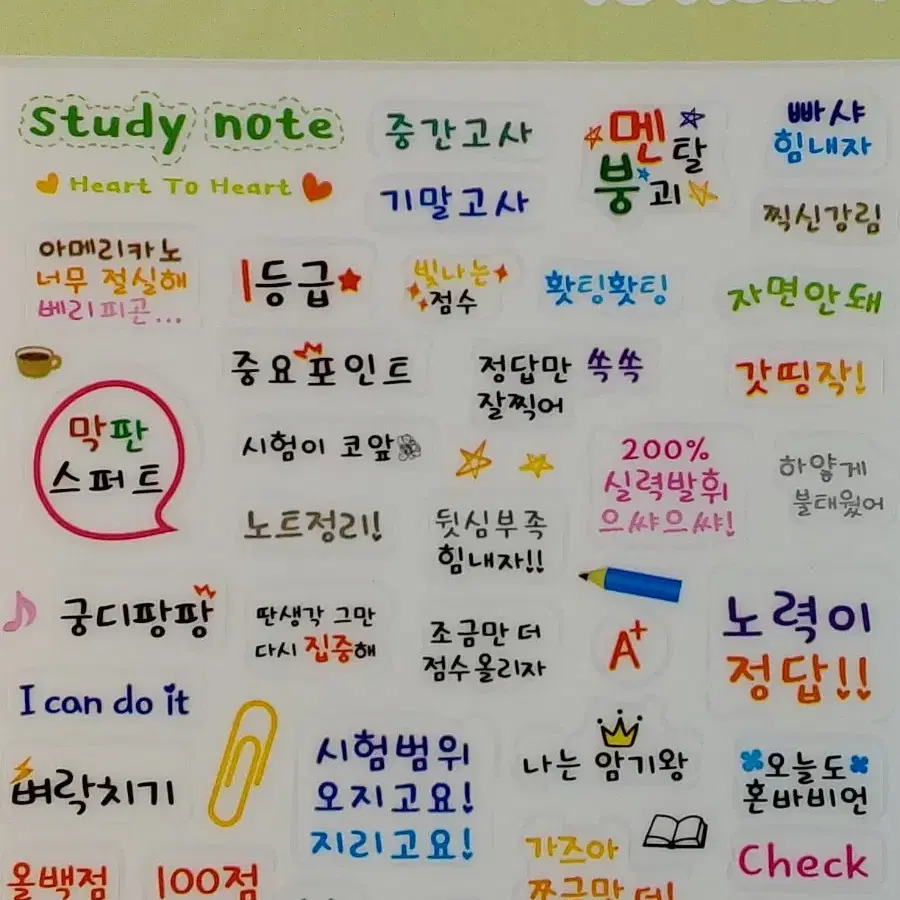 study note
Heart To Heart
중간고사
기말고사
멘탈
붕괴
빠샤
힘내자
찍신강림
아메리카노
너무 절실해
베리피곤...
1등급
빛나는
점수
홧팅홧팅
자면안돼
중요포인트
정답만 쏙쏙
잘찍어
갓띵작!
막판
스퍼트
시험이 코앞
200%
실력발휘
으쌰으쌰!
하얗게
불태웠어
노트정리!
뒷심부족
힘내자!!
궁디팡팡
딴생각 그만
다시 집중해
조금만 더
점수올리자
A+
노력이
정답!!
I can do it
벼락치기
시험범위
오지고요!
지리고요!
나는 암기왕
오늘도
혼바비언
올백점
100점
가즈아
쪼금만 더!
Check